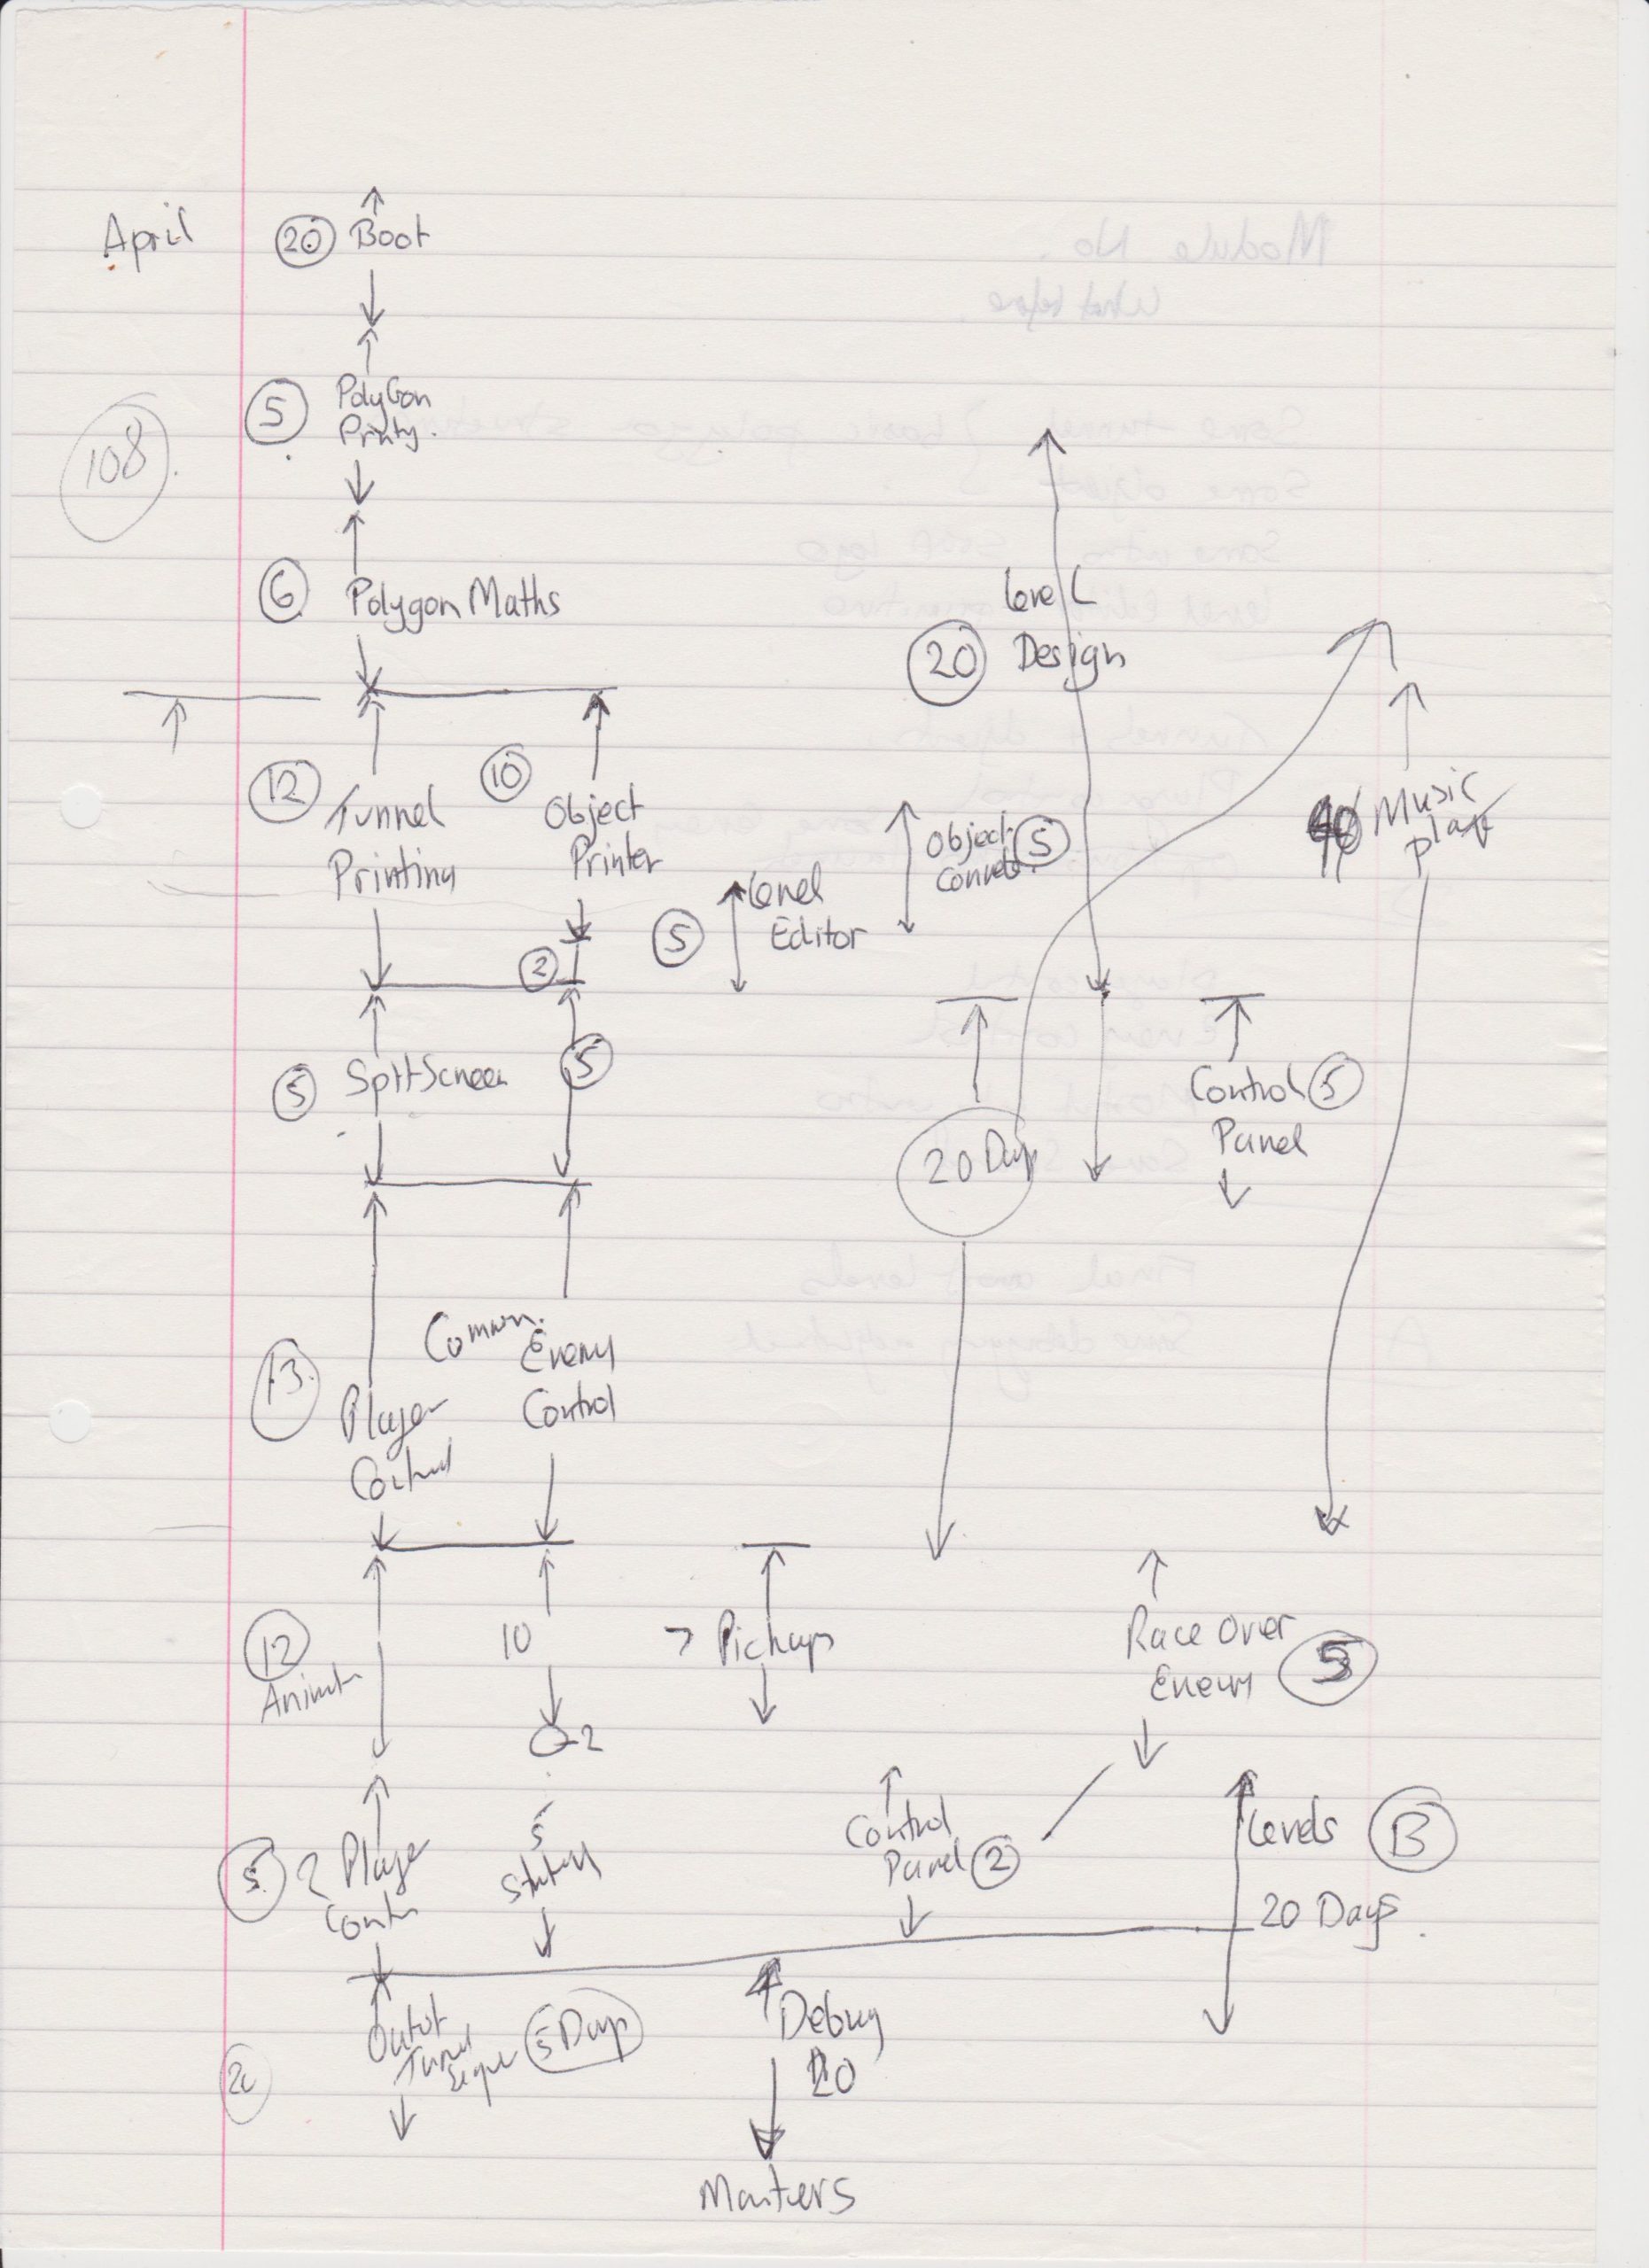 April
20 Boot
5 PolyGon
108.
6 Polygon Maths
Level
20 Design
12 Tunnel
Printing
10
Object
Printer
Object 5
5 Level
Editor
Music
2
5 Split Screen
5
20 Days
Control 5
Panel
13.
Player
Control
Common.
Enemy
Control
12
10
7 Pickups
Race Over
Enemy 5
2
5 2 Player
5
Control
Panel 2
Levels B
20 Days.
5 Days
Tunnel
Debug
20
Masters